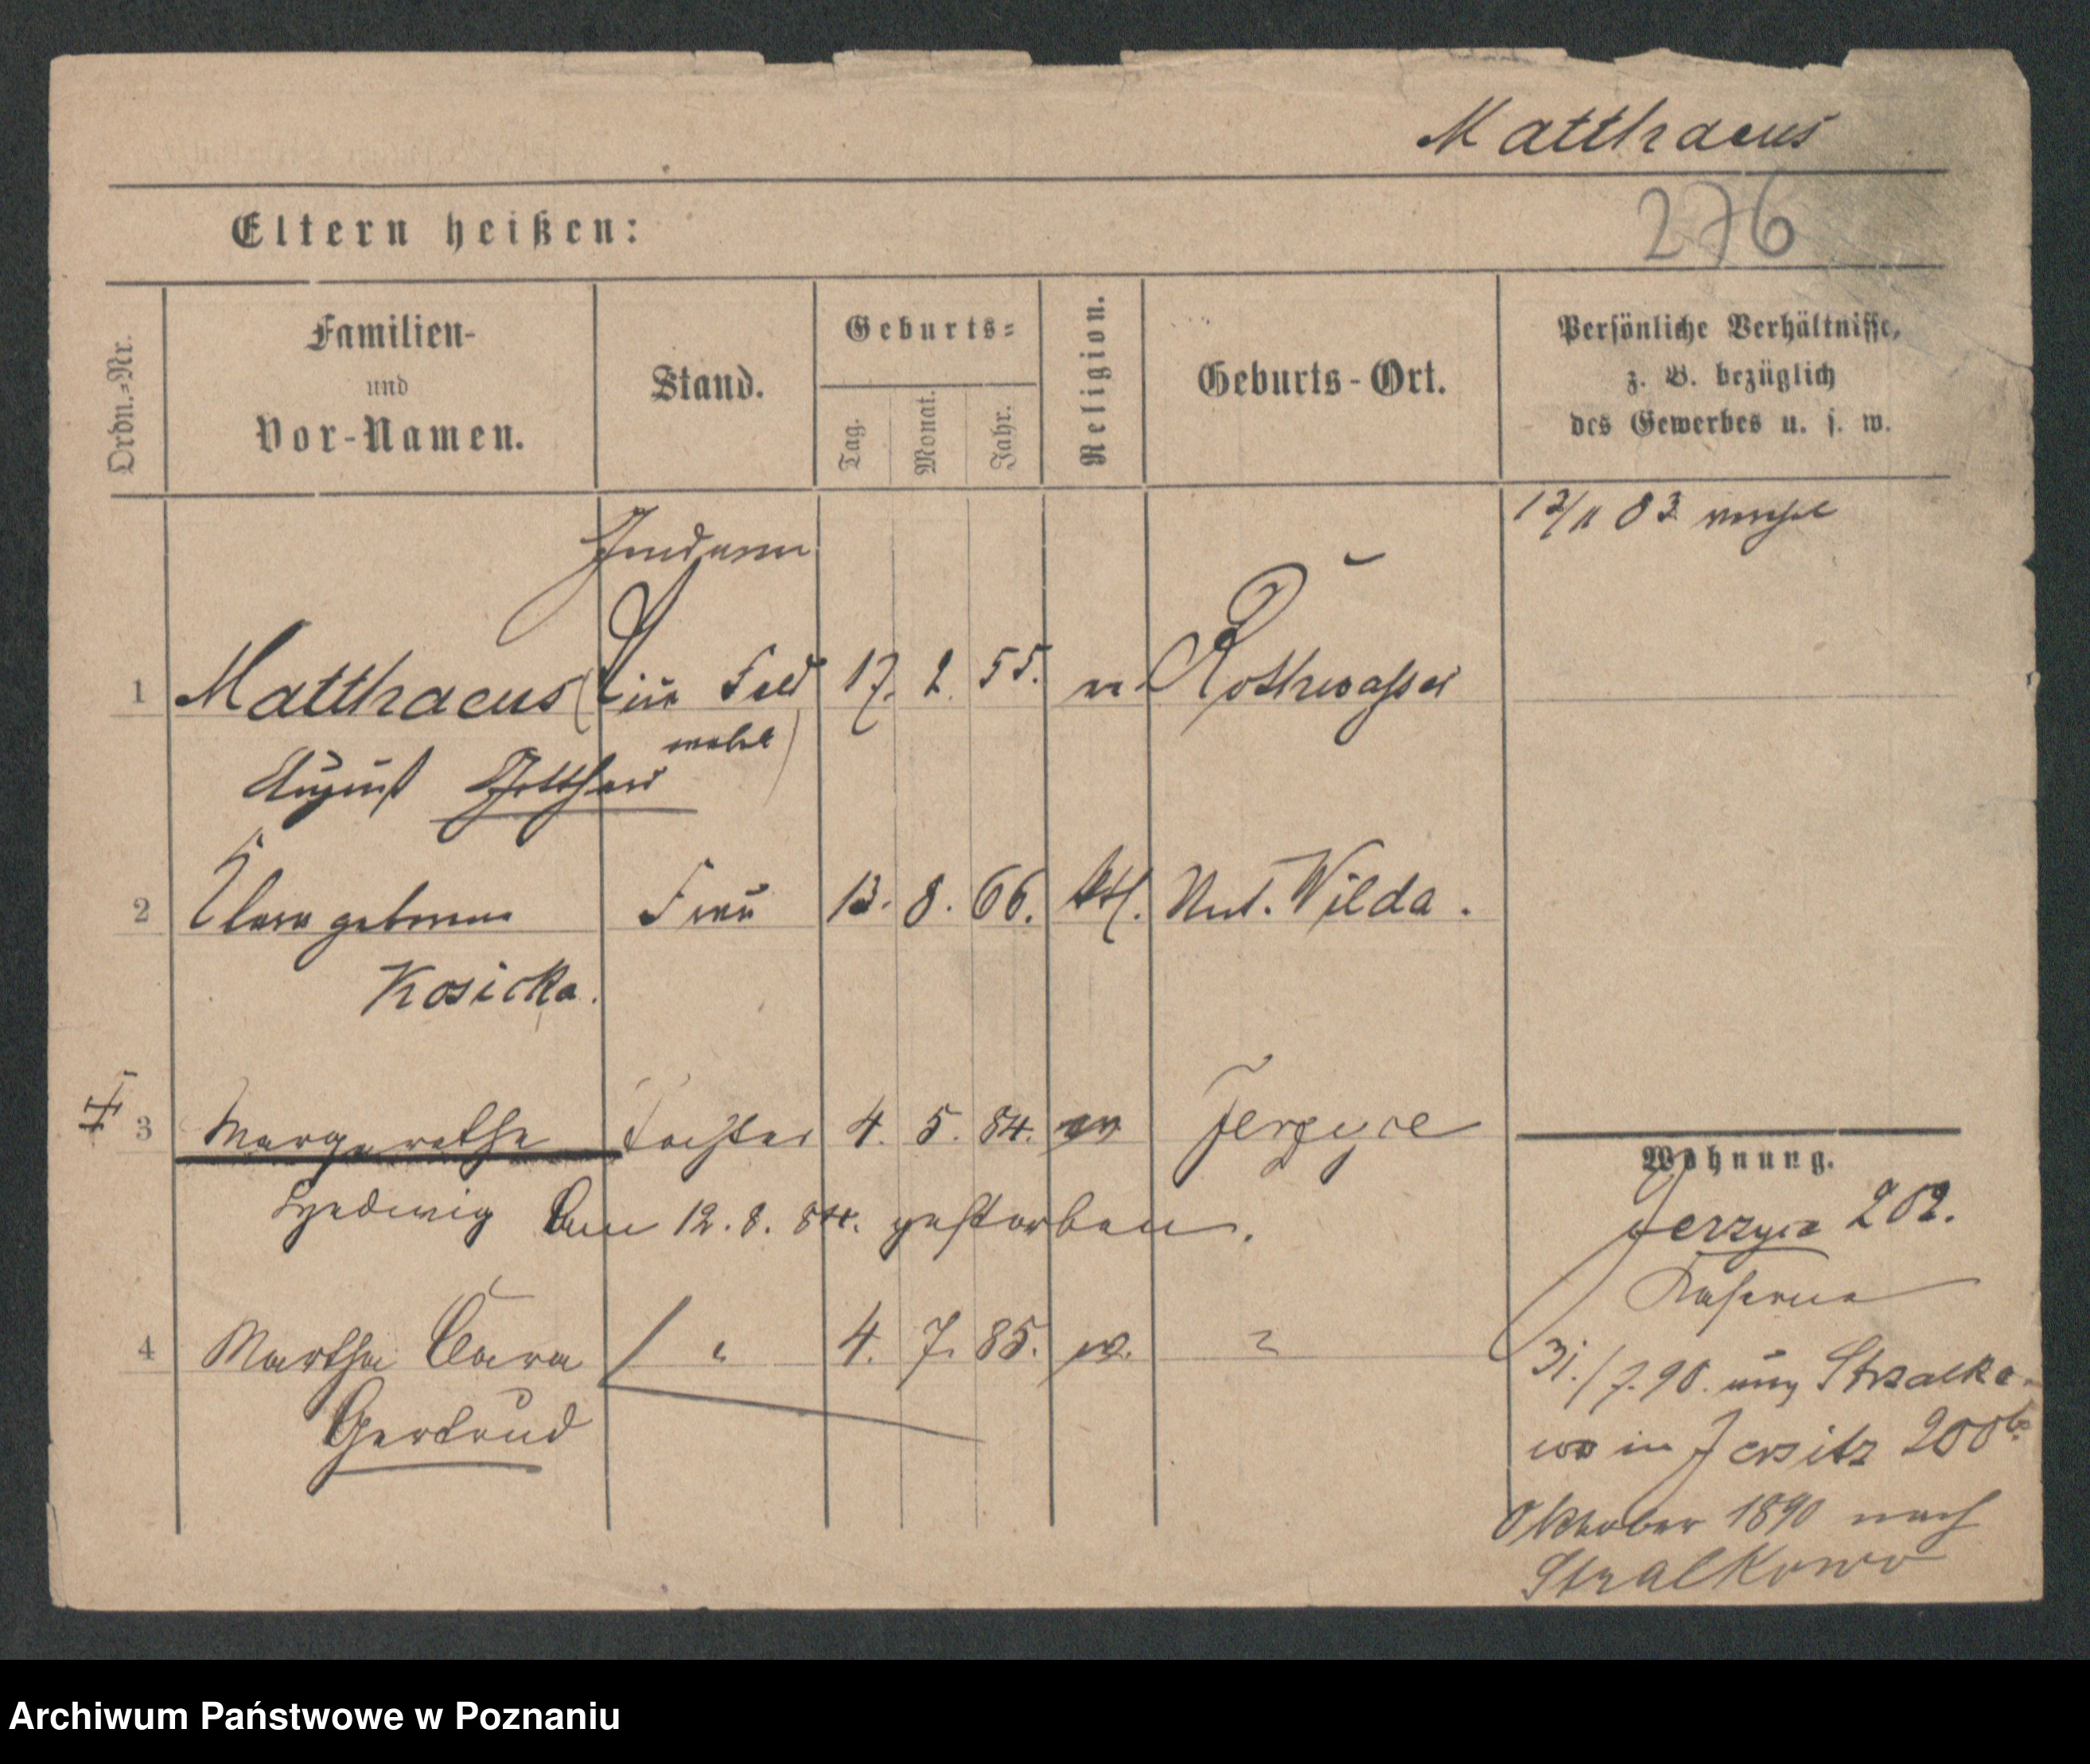 Matthaeus
276
Eltern heißen:
Ordn.=Nr.
Familien-
und
Vor-Namen.
Stand.
Geburts=
Tag.
Monat.
Jahr.
Religion.
Geburts-Ort.
Persönliche Verhältnisse,
z. B. bezüglich
des Gewerbes u. s. w.
12/11 83
1 Matthaeus 17. 2. 55. ev Rothwasser
August Gotthard
2 Clara geborene Frau 13. 8. 66. kth. Unt. Wilda.
Kosicka.
3 Margarethe Tochter 4. 5. 84. ev Jerzyce
Hedwig Am 12. 8. 84. gestorben.
4 Martha Clara " 4. 7. 85. ev. "
Gertrud
Wohnung.
Jerzyce 202.
Kaserne
31./7. 90. aus Strzalko
wo in Jersitz 200b
Oktober 1890 nach
Stralkowo
Archiwum Państwowe w Poznaniu